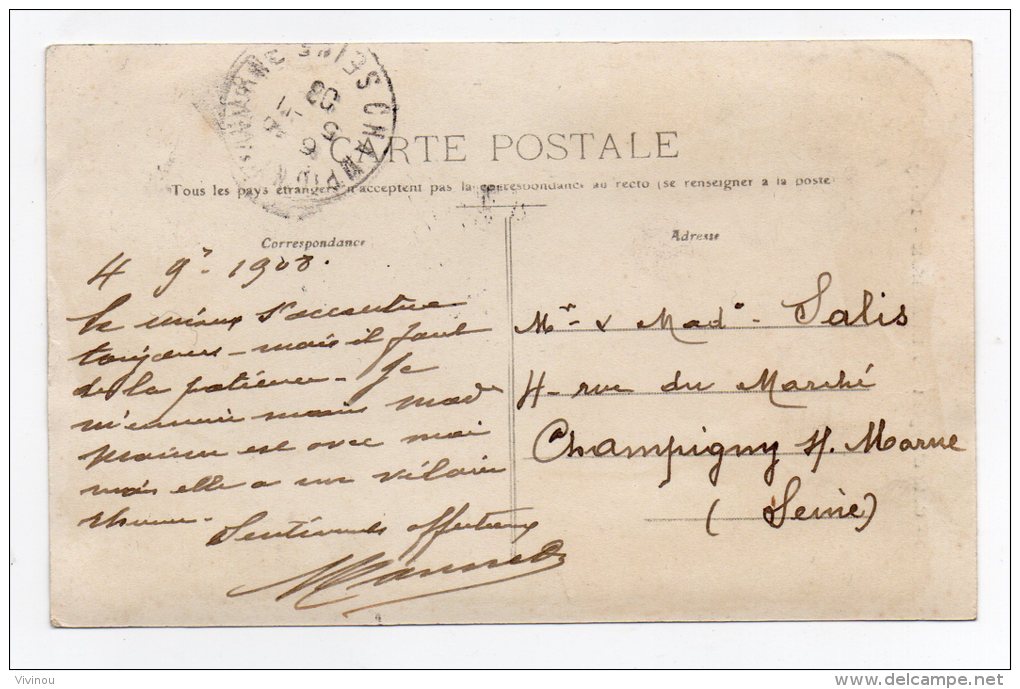 CHAMPIGNY S MARNE SEINE
6 -11
5
08
CARTE POSTALE
Tous les pays étrangers n'acceptent pas la correspondance au recto (se renseigner à la poste
Correspondance
Adresse
4 9r 1908.
le mieux s'accentue
toujours - mais il faut
de la patience - Je
m'ennuie moins Made
est avec moi
mais elle a un vilain
rhume -
Sentiments affectueux
Mr & Made - Salis
4 - rue du Marché
Champigny s/. Marne
(Seine)
Vivinou
delcampe.net